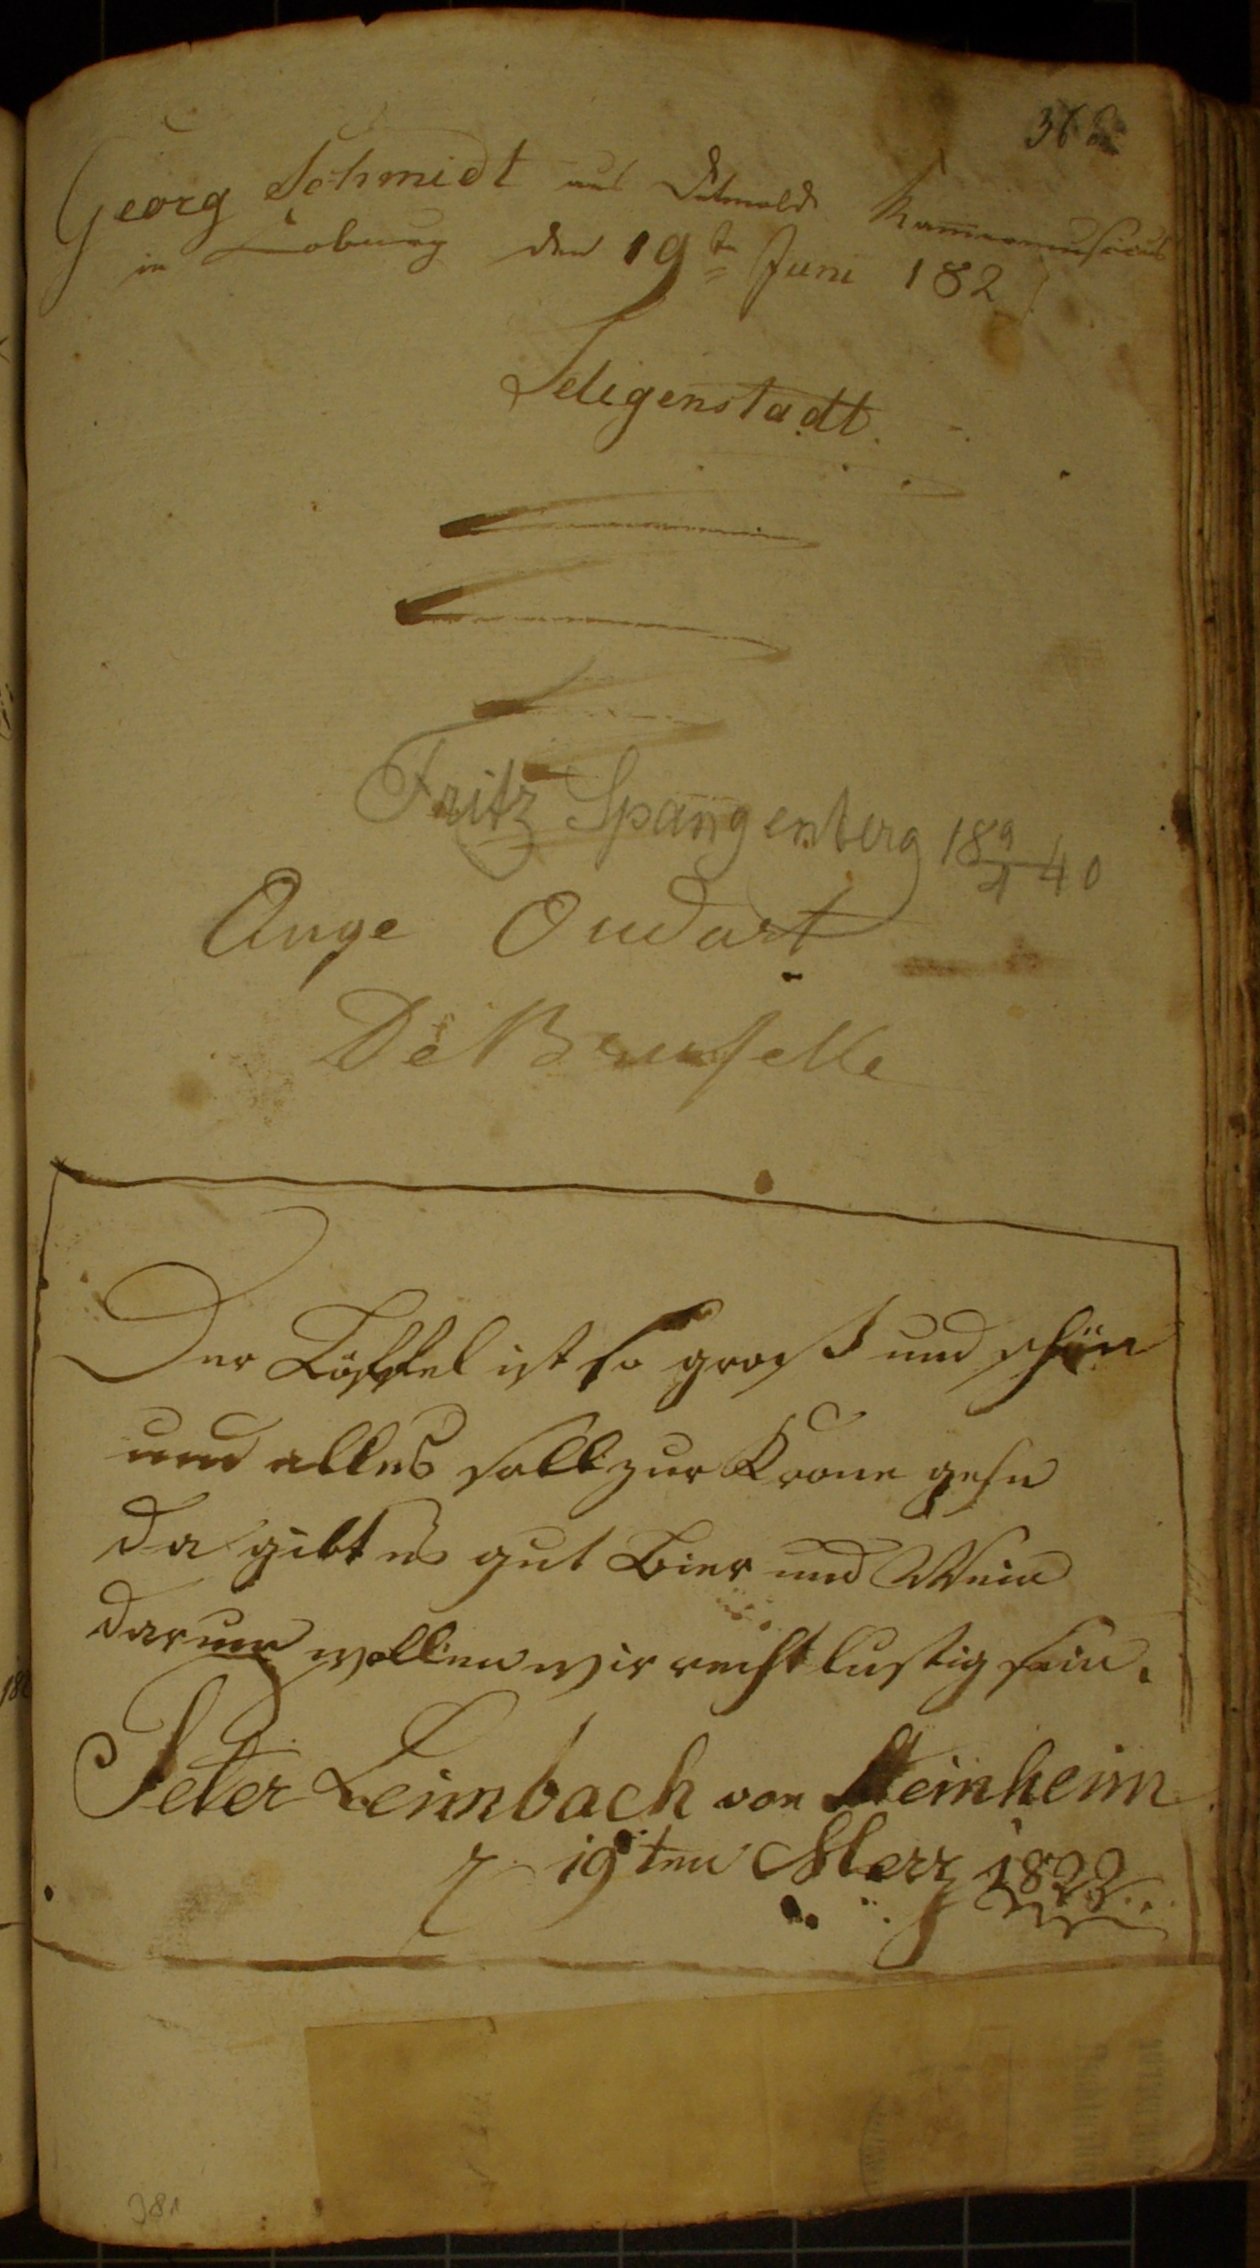 Georg Schmidt aus Detmold Kammermusicus
in Coburg den 19te Juni 182
Seligenstadt.
Fritz Spangenberg 18 9/4 40
Ange Oudart
De Bruselle
Der Löffel ist so groß und schön
und alles soll zur Krone gehn
da gibt es gut Bier und Wein
darum wollen wir recht lustig sein.
Peter Leimbach von Steinheim
19ten Merz 1823
381